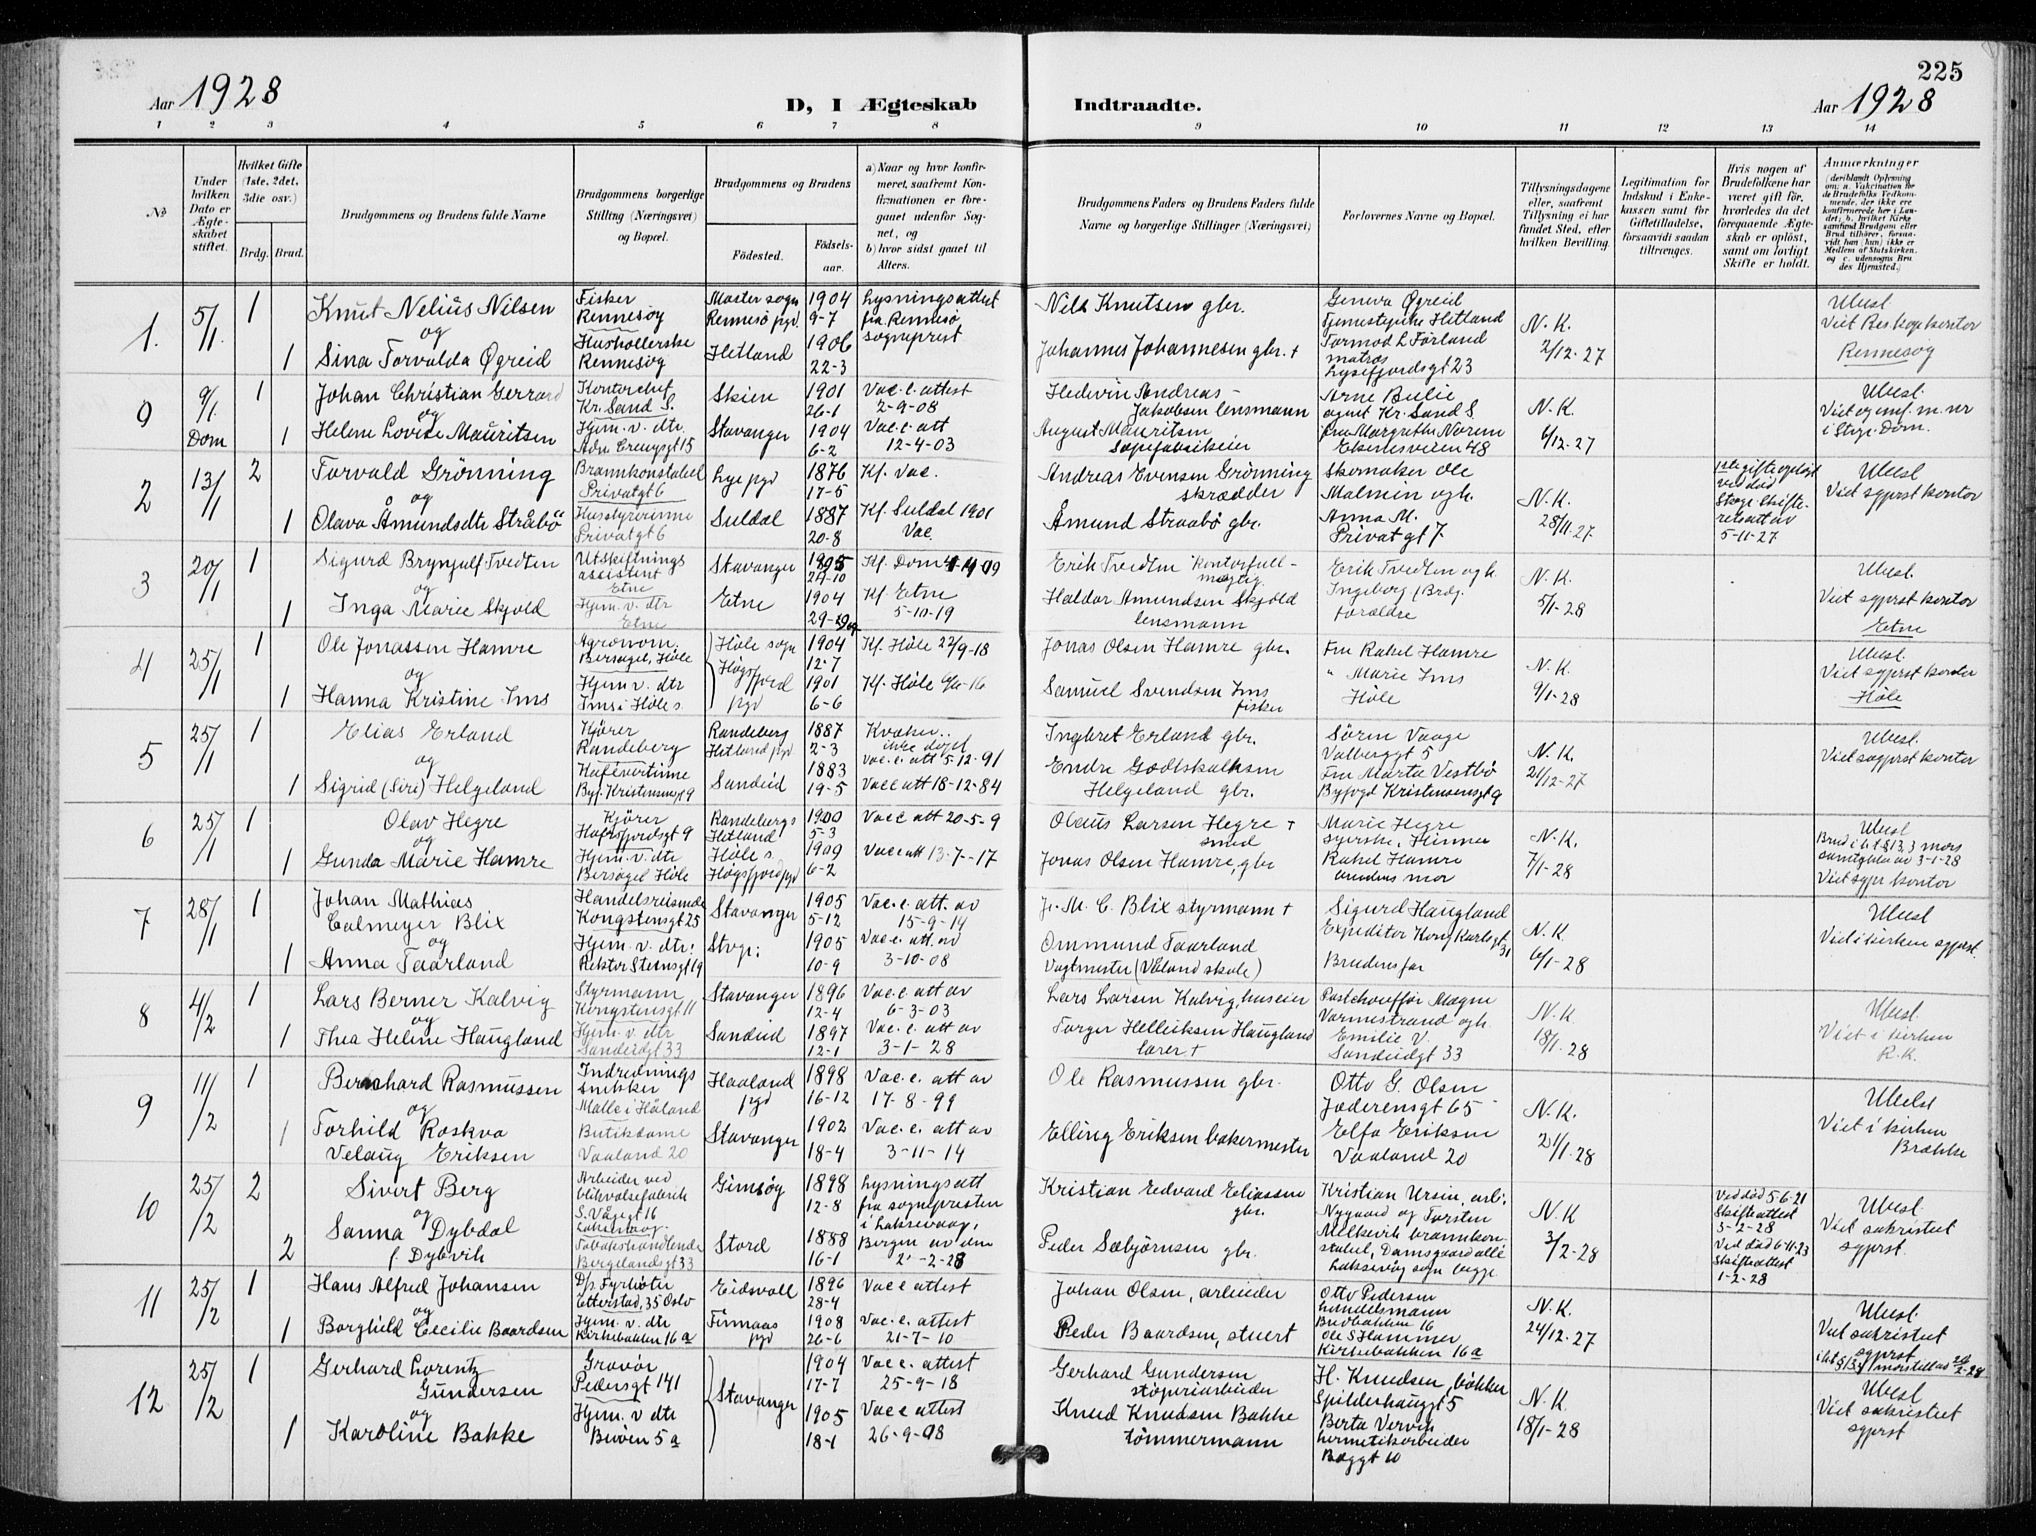 225
Aar 1928
D, I Ægteskab Indtraadte.
Aar 1928
1 2 3 4 5 6 7 8 9 10 11 12 13 14
No
Under hvilken Dato er Ægteskabet stiftet.
Hvilket Gifte (1ste, 2det, 3die osv.)
Brdg. Brud.
Brudgommens og Brudens fulde Navne
Brudgommens borgerlige Stilling (Næringsvei) og Bopæl.
Brudgommens og Brudens
Födested.
Födsels-aar.
a) Naar og hvor konfirmeret, saafremt Konfirmationen er foregaaet udenfor Sognet, og
b) hvor sidst gaaet til Alters.
Brudgommens Faders og Brudens Faders fulde Navne og borgerlige Stillinger (Næringsvei)
Forlovernes Navne og Bopæl.
Tillysningsdagene eller, saafremt Tillysning ei har fundet Sted, efter hvilken Bevilling.
Legitimation for Indskud i Enkekassen samt for Giftetilladelse, forsaavidt saadan tiltrænges.
Hvis nogen af Brudefolkene har været gift för, hvorledes da det foregaaende Ægteskab er oplöst, samt om lovligt Skifte er holdt.
Anmærkninger
(deriblandt Oplysning om: a. Vakcination for de Brudefolks Vedkommende, der ikke ere konfirmerede her i Landet; b. hvilket Kirkesamfund Brudgom eller Brud tilhörer, forsaavidt han (hun) ikke er Medlem af Statskirken, og c. udensogns Brudes Hjemsted.)
1. 5/1 1 Knut Nelius Nilsen Fisker Rennesøy Moster sogn Rennesø pgd 1904 9-7 Lysningsattest fra Rennesø sogneprest Nils Knutsen gbr. Geneva Øgreid Tjenestepike Hetland N.K. 2/12-27 Ubesl. Rennesøy
og
1 Sina Torvalda Øgreid Husholderske Rennesøy Hetland 1906 22-3 Johannes Johannesen gbr. + Tormod L Förland matros Lysefjordsgt 23
9 9/1 Dom 1 Johan Christian Gerrard Kontorchef Kr. Sand S. Skien 1901 26-1 Vac. c. attest 2-9-08 Hedevin Andreas Jakobsen lensmann Arne Bulie agent Kr. Sand S. N.K. 6/12-27 Ubesl.
og
1 Helene Lovise Mauritsen Hjem. v. dtr. Stavanger 1904 6-2 Vac. c. att 12-4-03 August Mauritsen Fru Margrethe Norem i Stvgr. Dom.
2 13/1 2 Torvald Grönning Brannkonstabel Privatgt 6 Lye pgd 1876 17-5 Kf. Vac. Andreas Evensen Grönning skrædder Skomaker Ole Malmin og h. N.K. 28/11-27 Ubesl Viet sgprst kontor
og
1 Olava Åmundsdtr Stråbö Husstyrerinne Privatgt 6 Suldal 1887 20-8 Kf. Suldal 1901 Vac. Åmund Straabö gbr. Anna M. Privatgt 7 5-11-27
3 20/1 1 Sigurd Brynjulf Tvedten Utskiftningsassistent Etne Stavanger 1895 Kf. Dom Erik Tvedten kontorfullmægtig Erik Tvedten og h. Ingeborg (Brdg. forældre N.K. 5/1-28 Ubesl. Viet sgprst kontor Etne
og
1 Inga Marie Skjold Hjem. v. dtr Etne Etne 1904 Kf. Etne 5-10-19 Haldor Amundsen Skjold lensmann
4 25/1 1 Ole Jonassen Hamre Agronom. Bersagel, Höle Höle sogn Högsfjord pgd 1904 12-7 Kf. Höle 22/9-18 Jonas Olsen Hamre gbr. Fru Rakel Hamre N.K. 9/1-28 Ubesl. Viet sgprst kontor Höle
og
1 Hanna Kristine Ims Hjem v. dtr Ims i Höle s. 1901 6-6 Kf. Höle Samuel Svendsen Ims fisker " Marie Ims Höle
5 25/1 1 Elias Erland Kjörer Randeberg Randeberg Hetland pgd 1887 2-3 Kvæker.. ikke döpt Vac. c. att 5-12-91 Ingbret Erland gbr. Sören Vaage Valberggt 5 N.K. 21/12-27 Ubesl. Viet sogprst kontor
og
1 Sigrid (Siri) Helgeland Kafévertinne Byf. Kristensensgt 9 Sandeid 1883 19-5 Vac c att 18-12-84 Endre Godtskalksen Helgeland gbr. Fru Marta Vestbö Byfogd Kristensensgt 9
6 25/1 1 Olav Hegre Kjörer Hafrsfjordsgt 9 Randebergs Hetland 1900 5-3 Vac c att 20-5-9 Olaus Larsen Hegre + smed Marie Hegre syerske, Hinna N.K. 7/1-28 Ubesl
og
1 Gunda Marie Hamre Hjem. v. dtr Bersagel Höle Höle s. Högsfjord pgd 1909 6-2 Vac c att 13-7-17 Jonas Olsen Hamre, gbr Rakel Hamre brudens mor 3-1-28 Viet sgpr kontor
7 28/1 1 Johan Mathias Calmeyer Blix Handelsreisende Kongstensgt 25 Stavanger 1905 5-12 Vac. c. att. av 15-9-14 M. C. Blix styrmann + Sigurd Haugland Expeditör Kong Karlsgt 31 N.K. 6/1-28 Ubesl Viet i kirken sgprst.
og
1 Anna Taarland Hjem. v. dtr. Rektor Steensgt 19 Stvgr: 1905 10-9 Vac c. att. av 3-10-08 Ommund Taarland Vagtmester (Våland skole) Brudens far
8 4/2 1 Lars Berner Kalvig Styrmann Kongstensgt 11 Stavanger 1896 12-4 Vac. c. att av 6-3-03 Lars Larsen Kalvig, huseier Postchauffør Magne Varmestrand og h. N.K. 18/1-28 Ubesl. Viet i kirken R.K.
og
1 Thea Helene Haugland Hjem v. dtr Sandeidgt 33 Sandeid 1897 12-1 Vac. c. att av 3-1-28 Torger Helliksen Haugland lærer + Emilie V. Sandeidgt 33
9 11/2 1 Bernhard Rasmussen Indrednings snekker Malle i Håland Haaland pgd 1898 16-12 Vac. c. att av 17-8-99 Ole Rasmussen gbr. Otto G. Olsen Jæderensgt 65 N.K. 21/1-28 Ubesl Viet i kirken Brække
og
1 Torhild Roskva Velaug Eriksen Butikdame Vaaland 20 Stavanger 1902 18-4 Vac. c. att av 3-11-14 Elling Eriksen bakermester Elfa Eriksen Vaaland 20
10 25/2 2 Sivert Berg Arbeider ved blikvalsefabrik Gimsøy 1898 12-8 Lysningsatt fra sognepresten i Laksevaag, Bergen av den Kristian Edvard Eliassen gbr. Kristian Ursin, arb. Nygaard og Torsten N.K 3/2-28 Ved död 5-6-21 Skifteattest 3-2-28 Ubesl. Viet sakristiet sgprst.
og
2 Sanna Dybdal f. Dybvik Tobakshandlende Bergelandsgt 33 Stord 1888 16-1 Peder Sæbjörnsen gbr. Melkevik brannkonstabel, Damsgaardallé Laksevåg sogn begge Ved död 6-11-23 Skifteattest 1-2-28
11 25/2 1 Hans Alfred Johansen D/s Fyrböter Etterstad, 35 Oslo Eidsvoll 1896 28-4 Vac c attest Johan Olsen, arbeider Otto Pedersen handelsmann N.K. 24/12-27 Ubesl. Viet sakristiet sgprst
og
1 Borghild Cecilie Baardsen Hjem. v. dtr Kirkebakken 16a pgd 1908 26-6 Vac. c. attest 21-7-10 Peder Baardsen, stuert Ole S Hammer Kirkebakken 16a
12 25/2 1 Gerhard Lorentz Gundersen Gravör Pedersgt 141 Stavanger 1904 17-7 Vac c. attest 25-9-18 Gerhard Gundersen støperiarbeider H. Knudsen, bökker Spilderhauggt 5 N.K. 18/1-28 Ubesl Viet sakristiet sgprst
og
1 Karoline Bakke Hjem. v dtr 5a 1905 18-1 Vac c attest 26-9-08 Knud Knudsen Bakke tömmermann Berta Vervik hermetikarbeider Bøggt 10